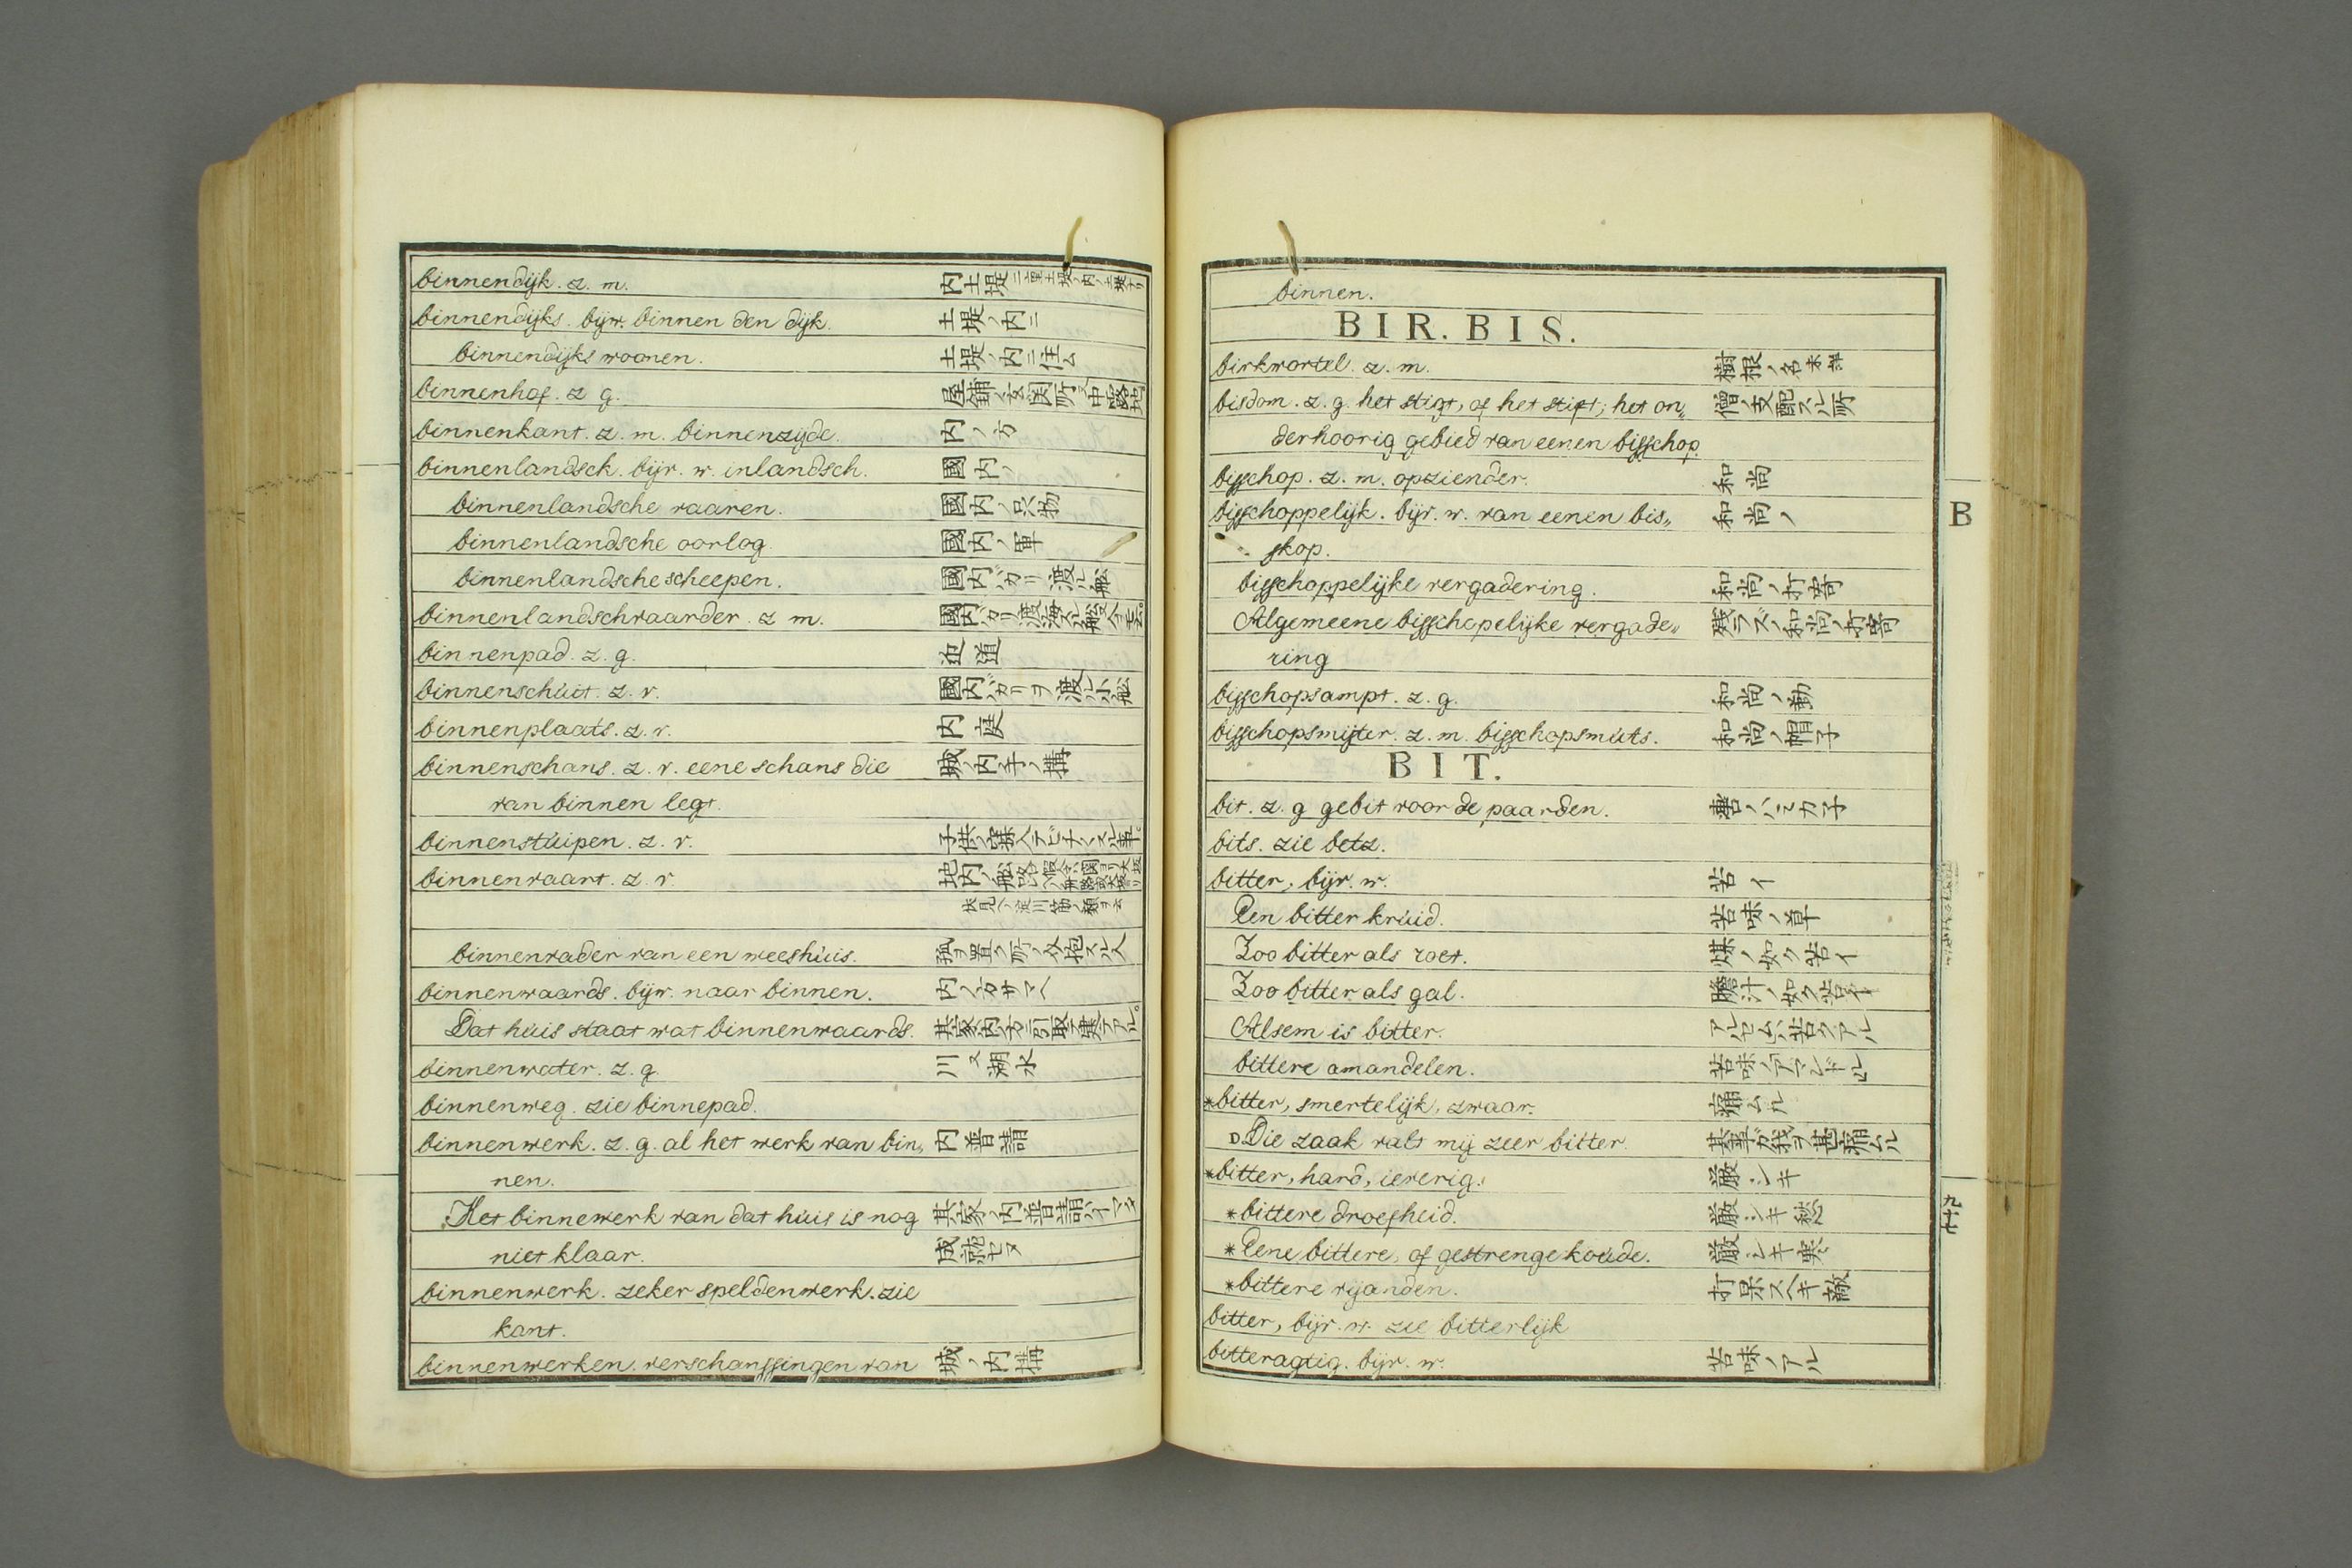 binnendijk. z. m. 内土堤
binnendijks. bijw. binnen den dijk. 土堤ノ内ニ
binnendijks woonen. 土堤ノ内ニ住ム
binnenhof. z g.
binnenkant. z. m. binnenzijde. 内ノ方
binnenlandsch. bijv. w. inlandsch. 國内ノ
binnenlandsche vaaren. 國内ノ呉物
binnenlandsche oorlog. 國内ノ軍
binnenlandsche scheepen. 國内バカリ渡ル舩
binnenlandschvaarder. z m.
binnenpad. z. g. 近道
binnenschuit. z. v. 國内バカリヲ渡ル小舩
binnenplaats. z. v. 内庭
binnenschans. z. v. eene schans die 城ノ内手ノ構
van binnen legt.
binnenstuipen. z. v.
binnenvaart. z. v. 地内ノ舩路
伏見ヘノ淀川筋ノ類ヲ云
binnenvader van een weeshuis.
binnenwaards. bijw. naar binnen. 内ノ方サマヘ
Dat huis staat wat binnenwaards.
binnenwater. z. g. 川又湖水
binnenweg. zie binnepad.
binnenwerk. z. g. al het werk van bin„ 内普請
nen.
Het binnewerk van dat huis is nog 其家ノ内普請ハイマダ
niet klaar. 成就セヌ
binnenwerk. zeker speldenwerk. zie
kant.
binnenwerken. verschanssingen van 城ノ内構
binnen.
BIR. BIS.
birkwortel. z. m. 樹根ノ名未詳
bisdom. z. g. het stigt, of het stift; het on„ 僧ノ支配スル所
derhoorig gebied van eenen bisschop.
bisschop. z. m. opziender. 和尚
bisschoppelijk. bijv. w. van eenen bis„ 和尚ノ
skop.
bisschoppelijke vergadering. 和尚ノ打寄
Algemeene bisschopelijke vergade„ 残ラズノ和尚ノ打寄
ring
bisschopsampt. z. g. 和尚ノ勤
bisschopsmijter. z. m. bisschopsmuts. 和尚ノ帽子
BIT.
bit. z. g gebit voor de paarden. 轡ノハミカ子
bits. zie betz.
bitter, bijv. w. 苦イ
Een bitter kruid. 苦味ノ草
Zoo bitter als roet. 煤ノ如ク苦イ
Zoo bitter als gal. 膽汁ノ如ク苦イ
Alsem is bitter. アルセムハ苦クアル
bittere amandelen. 苦味ノアマンドル
*bitter, smertelijk, zwaar. 痛ムル
D Die zaak valt mij zeer bitter. 其事ガ我ヲ甚痛ムル
*bitter, hard, ieverig. 厳シキ
*bittere droefheid. 厳シキ愁
*Eene bittere, of gestrenge koude. 厳シキ寒
*bittere vijanden. 打果スヘキ敵
bitter, bijv. w. zie bitterlijk
bitteragtig. bijv. w. 苦味ノアル
B
九十七